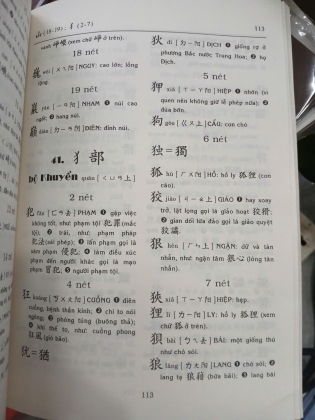 山 (18-19); 犭 (2-7)
113
18 nét
lồng.
19 nét
NHAM: ❶ núi cao
ngất; ❷ hang núi.
DIÊN: đỉnh núi.
41. 犭部
bộ Khuyển
2 nét
犯 fàn [ㄈㄢ去] PHẠM ❶ gặp việc
không tốt, như phạm tội 犯罪 (mắc
tội); ❷ trái, như: phạm pháp
犯法 (sái phép); ❸ lấn phạm gọi là
xâm phạm 侵犯; ❹ làm điều xúc
phạm đến người khác gọi là mạo
phạm 冒犯; ❺ người phạm tội.
4 nét
狂 kuáng [ㄎㄨㄤ阳] CUỒNG ❶ điên
cuồng, bệnh thần kinh; ❷ chỉ to nói
ngông; ❸ phóng túng (buông thả);
❹ khí thế to, như: cuồng phong
狂風 (gió bão).
犹 = 猶
狄 dí [ㄉㄧ阳] ĐỊCH ❶ giống rợ ở
phương Bắc nước Trung Hoa; ❷ họ
Địch.
5 nét
狎 xiá [ㄒㄧㄚ阳] HIỆP ❶ nhờn (vì
quen nên không giữ lễ phép nữa); ❷
đùa bỡn.
狗 gǒu [ㄍㄡ上] CẨU: con chó
6 nét
独 = 獨
狐 hú [ㄏㄨ阳] HỒ: hồ ly 狐狸 (con
cáo).
狡 jiǎo [ㄐㄧㄠ上] GIẢO ❶ hay xoay
trở, lật lọng gọi là giảo hoạt 狡猾;
❷ gian dối lừa đảo gọi là giảo quyệt
狡譎.
狠 hěn [ㄏㄣ上] NGẬN: dữ và tàn
nhẫn, như ngận tâm 狠心 (lòng tàn
nhẫn).
7 nét
狹 xiá [ㄒㄧㄚ阳] HIỆP: hẹp.
狸 lí [ㄌㄧ阳] LY: hồ ly 狐狸 (xem
chữ 狐 ở trên).
狽 bèi [ㄅㄟ去] BÁI: một giống thú
như chó sói.
狼 láng [ㄌㄤ阳] LANG ❶ chó sói; ❷
lang tạ 狼藉 (bừa bãi); ❸ lang bái
113